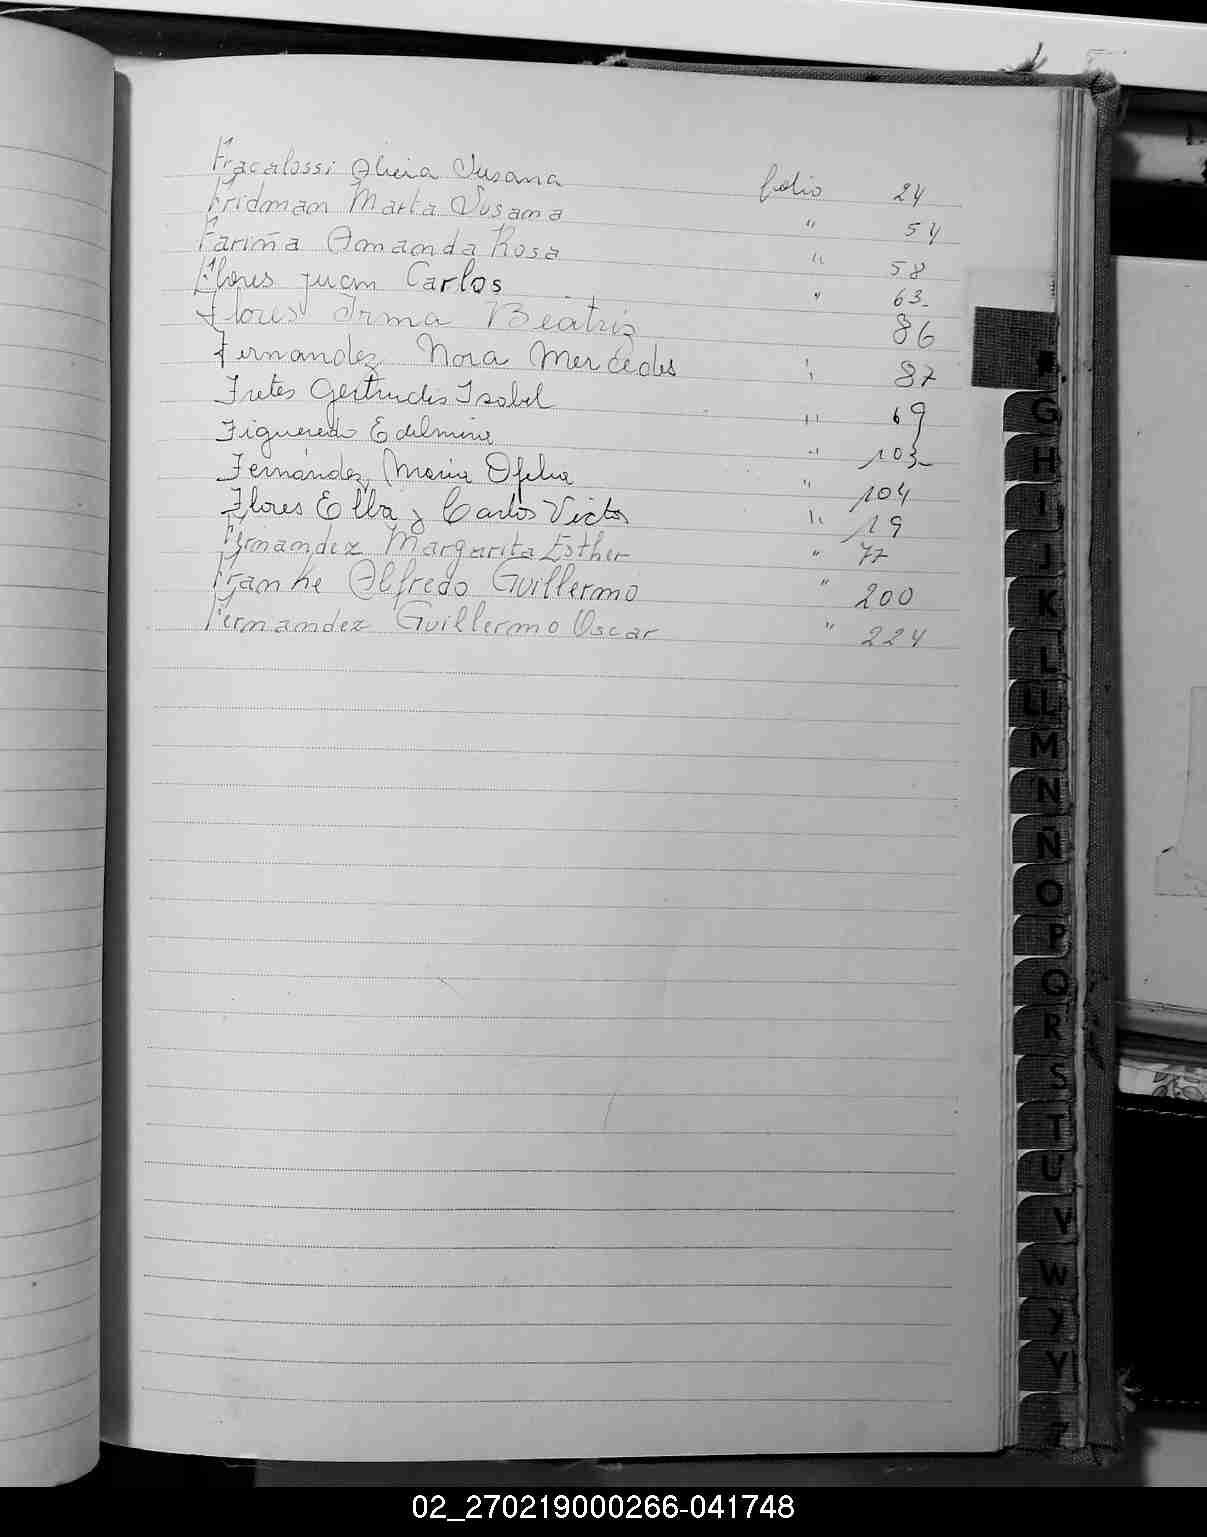 Fracalossi Alicia Susana folio 24
Fridman Marta Susana " 54
Fariña Amanda Rosa " 58
Flores Juan Carlos " 63-
Flores Irma Beatriz 86
Fernandez Nora Mercedes " 87
Fretes Gertrudis Isabel " 69
Figueredo Edelmira " 103-
Fernández, María Ofelia " 104
Flores Elba y Carlos Victor " 19
Fernandez Margarita Esther " 77
Franke Alfredo Guillermo " 200
Fernandez Guillermo Oscar " 224
F
G
H
I
J
K
L
LL
M
N
Ñ
O
P
Q
R
S
T
U
V
W
Y
Z
02_270219000266-041748